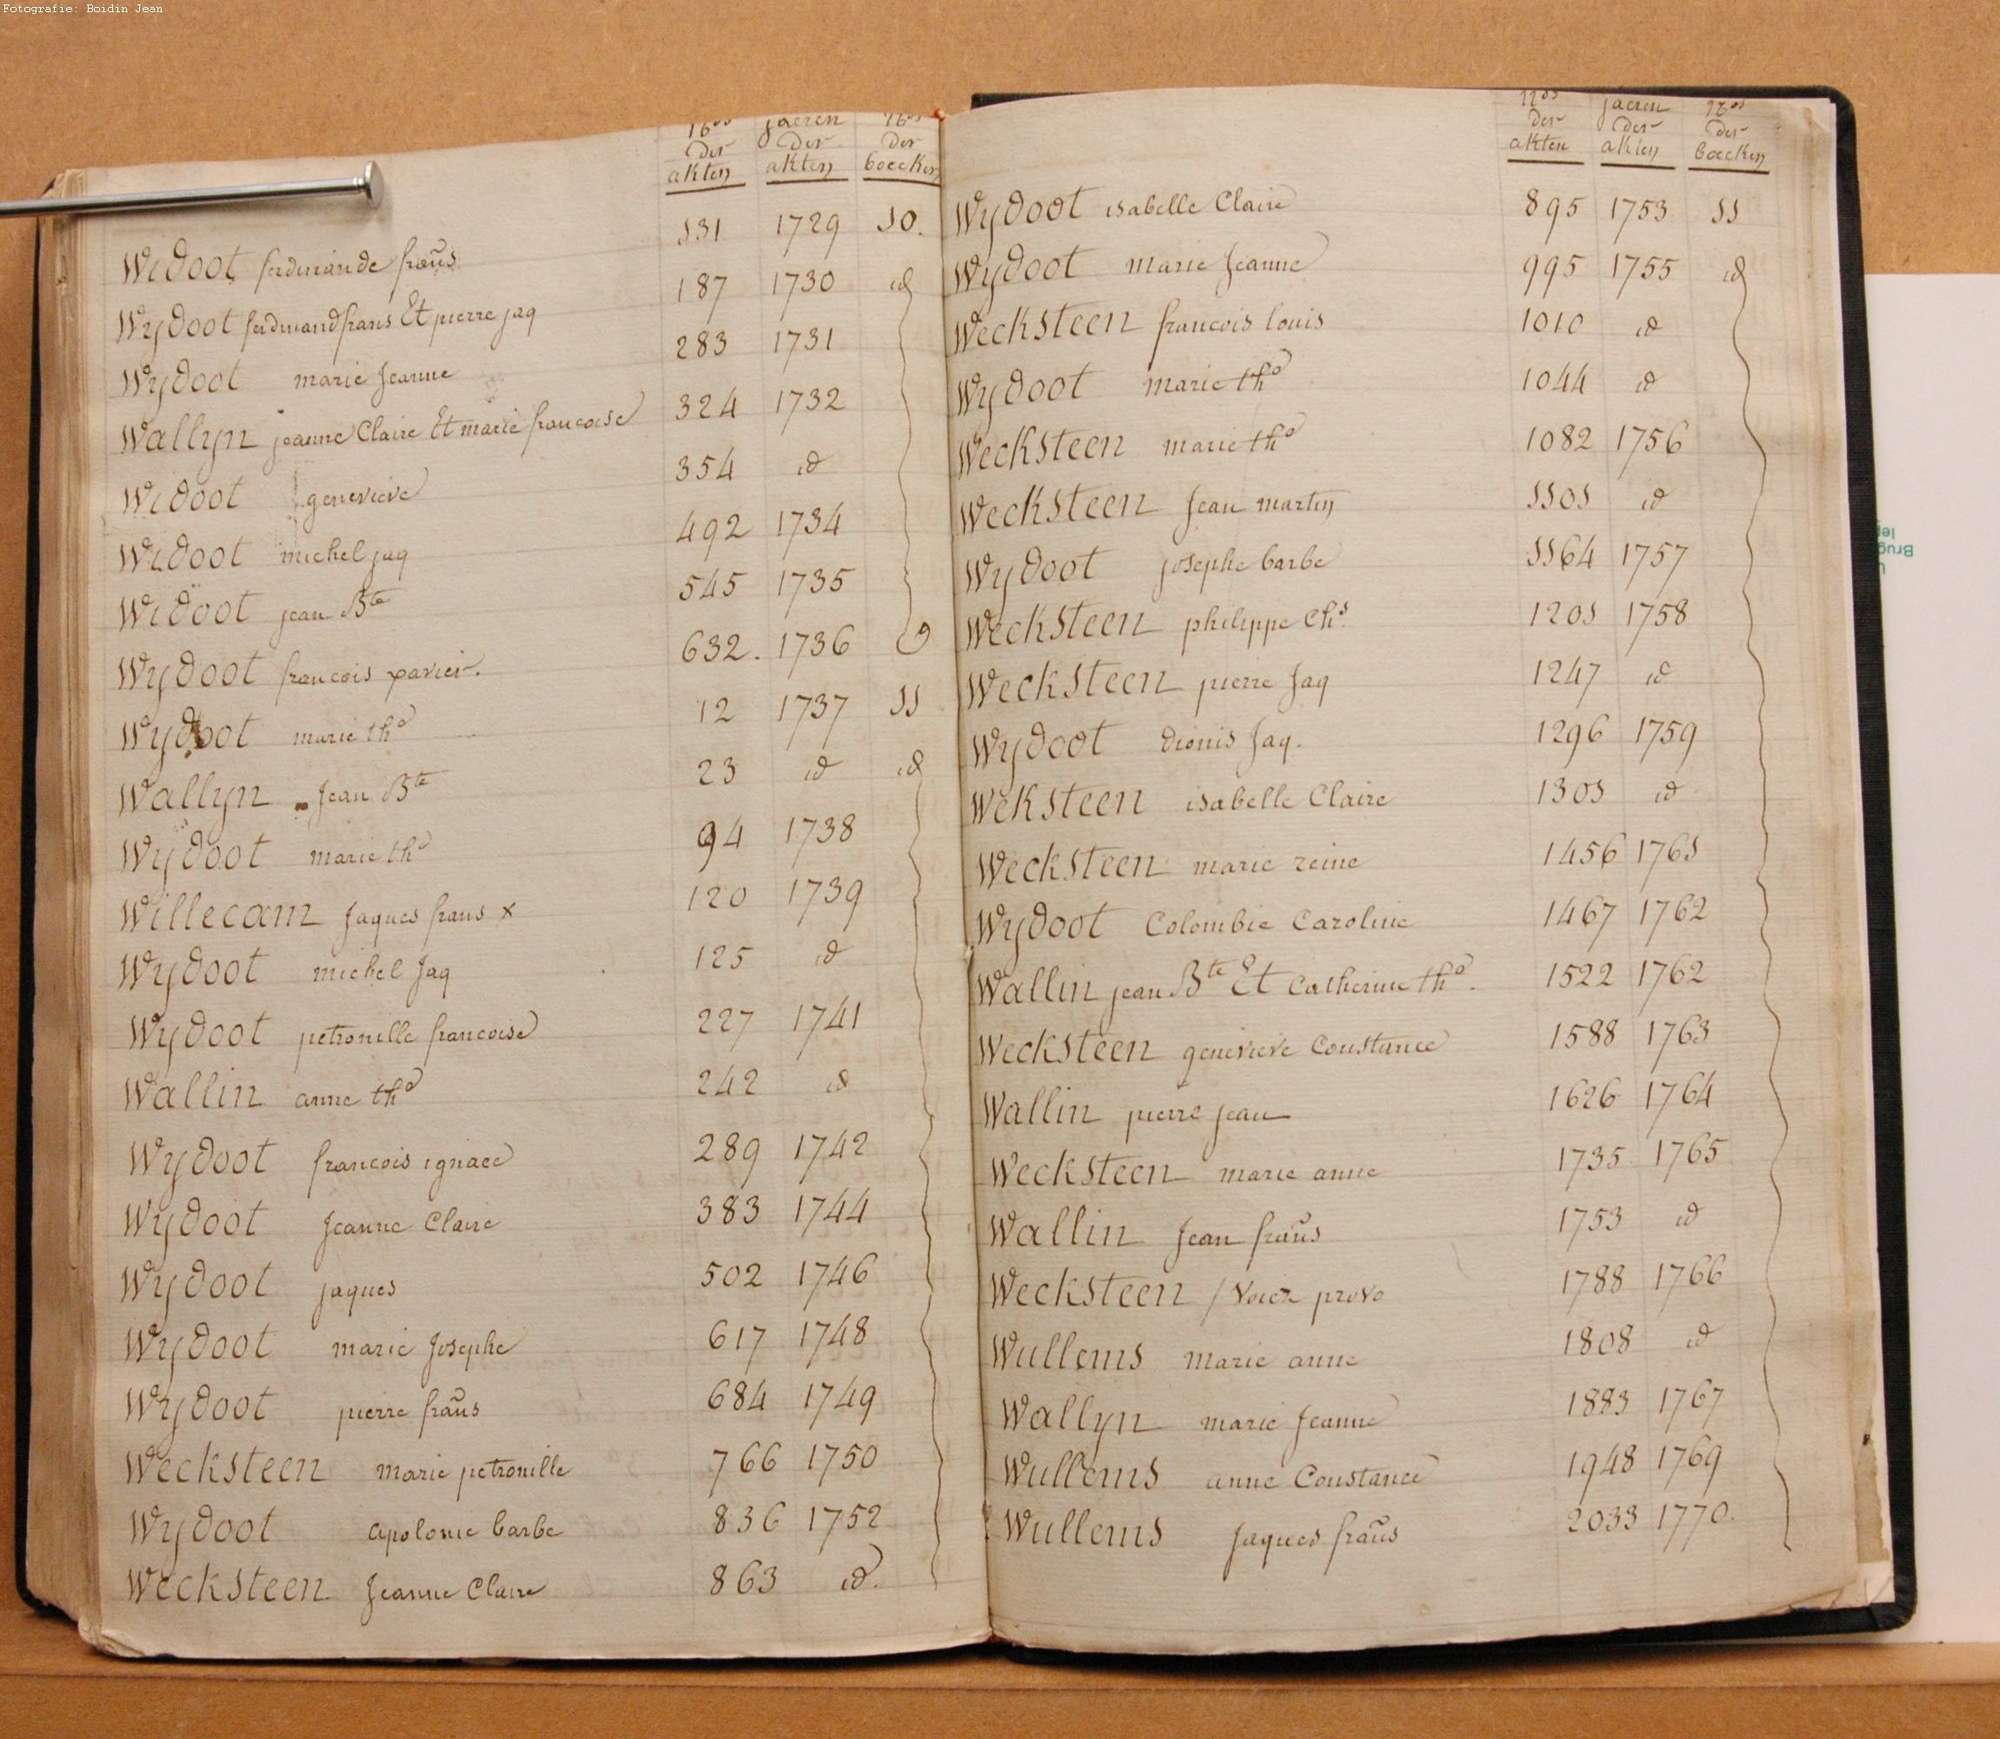 Fotografie: Boidin Jean
Nos jaeren Nos
der der der
akten akten boecken
Widoot ferdinande frans 131 1729 10.
Wydoot ferdinand frans Et pierre jaq 187 1730 id
Wydoot marie Jeanne 283 1731
Wallyn jeanne Claire Et marie francoise 324 1732
Widoot genevieve 354 id
Widoot michel jaq 492 1734
Widoot jean Bte 545 1735
Wydoot francois xavier. 632. 1736
Wydoot marie the 12 1737 11
Wallyn Jean Bte 23 id id
Wydoot marie the 94 1738
Willecam Jaques frans x 120 1739
Wydoot michel Jaq 125 id
Wydoot petronille francoise 227 1741
Wallin anne the 242 id
Wydoot francois ignace 289 1742
Wydoot Jeanne Claire 383 1744
Wydoot jaques 502 1746
Wydoot marie Josephe 617 1748
Wydoot pierre frans 684 1749
Wecksteen marie petronille 766 1750
Wydoot apolonie barbe 836 1752
Wecksteen Jeanne Claire 863 id.
nos jaeren nos
der der der
akten akten boecken
Wydoot isabelle Claire 895 1753 11
Wydoot marie Jeanne 995 1755 id
Wecksteen francois louis 1010 id
Wydoot marie the 1044 id
Wecksteen marie the 1082 1756
Wecksteen Jean martin 1101 id
Wydoot josephe barbe 1164 1757
Wecksteen philippe Chs. 1201 1758
Wecksteen pierre Jaq 1247 id
Wydoot dionis Jaq. 1296 1759
Weksteen isabelle Claire 1301 id
Wecksteen marie reine 1456 1761
Wydoot Colombie Caroline 1467 1762
Wallin jean Bte Et Catherine the. 1522 1762
Wecksteen genevieve Constance 1588 1763
Wallin pierre jean 1626 1764
Wecksteen marie anne 1735 1765
Wallin Jean frans 1753 id
Wecksteen / Voiez provo 1788 1766
Wullems marie anne 1808 id
Wallyn marie Jeanne 1883 1767
Wullems anne Constance 1948 1769
Wullems Jaques frans 2033 1770.